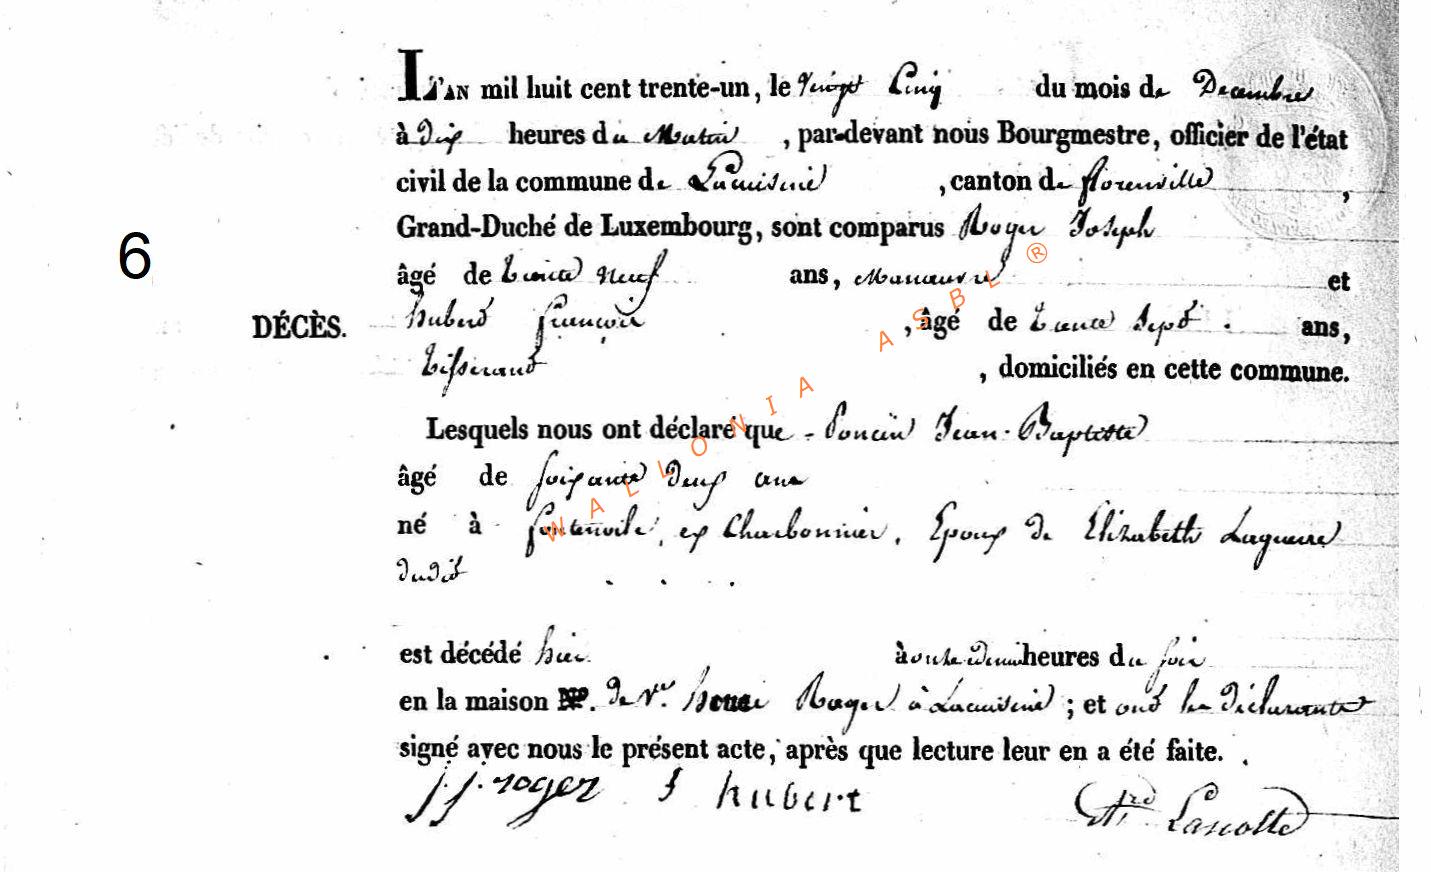 L'AN mil huit cent trente-un, le vingt Cinq du mois de Decembre
à dix heures du Matin, par-devant nous Bourgmestre, officier de l'état
civil de la commune de Lacuisine, canton de florenville,
Grand-Duché de Luxembourg, sont comparus Roger Joseph
6
âgé de trente neuf ans, Manœuvre et
DÉCÈS.
hubert françois, âgé de trente sept ans,
tisserand, domiciliés en cette commune.
WALLONIA ASBL ®
Lesquels nous ont déclaré que Poncin Jean-Baptiste
âgé de soixante deux ans
né à fontenoile, ex Charbonnier, Epoux de Elizabeth Laguerre
dudit
est décédé hier à onze heures du soir
en la maison No. de Ve. henri Roger à Lacuisine ; et ont les déclarants
signé avec nous le présent acte, après que lecture leur en a été faite.
j. j. roger f hubert Lascotte